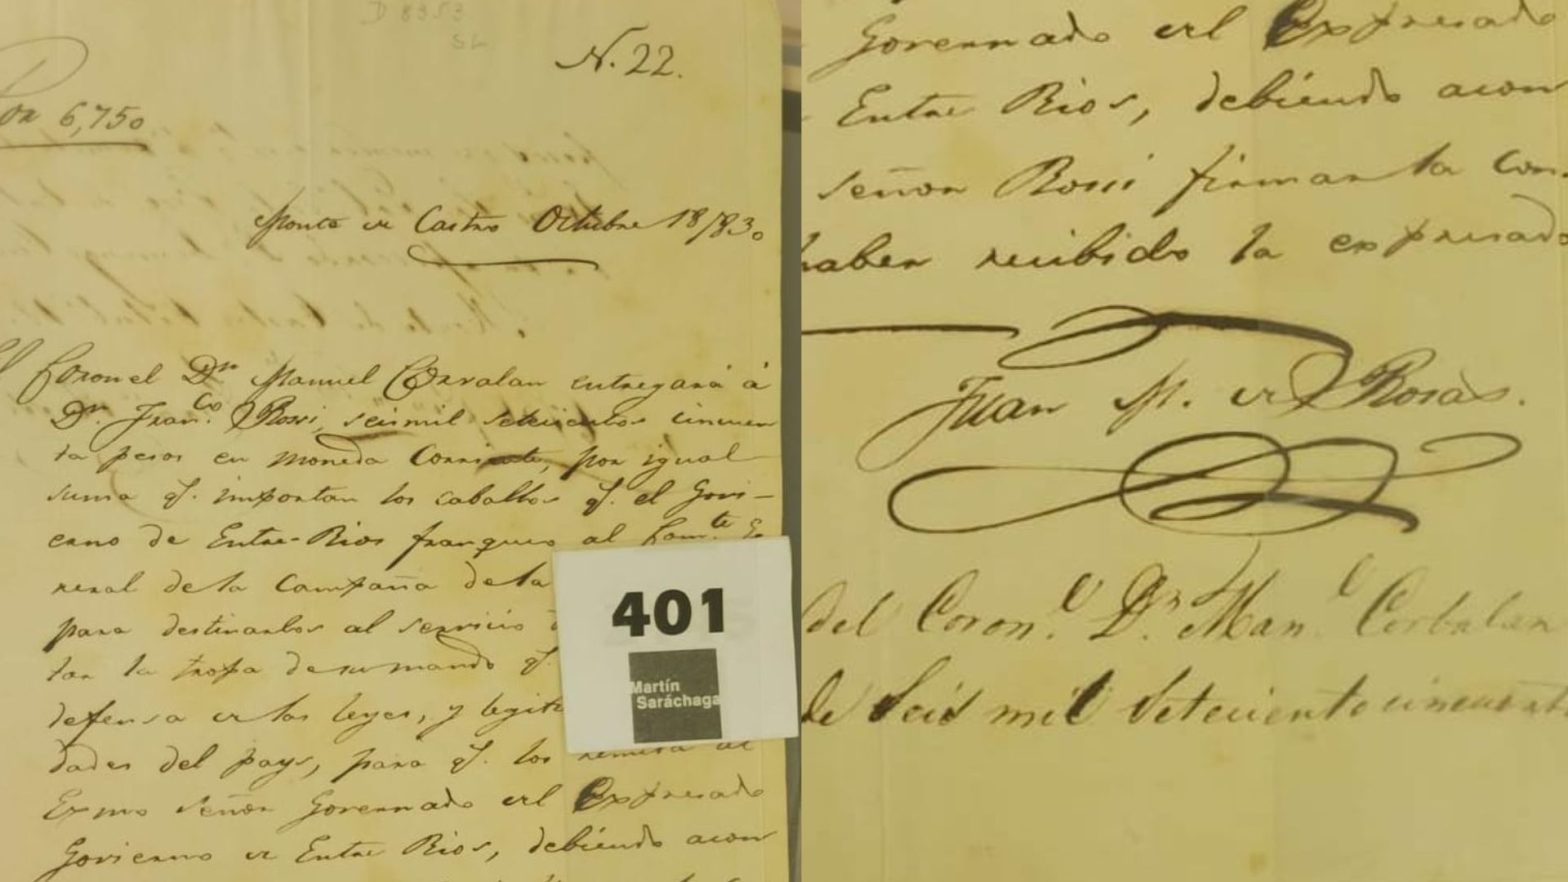 D 8353
SL
N. 22.
Por 6,750
Monte de Castro Octubre 18/830
El Coronel Dn. Manuel Corvalan entregará á
Dn. Franco. Rossi, seis mil setecientos cincuen
ta pesos en moneda corriente, por igual
suma q. importan los caballos q. el Govi-
erno de Entre-Rios franqueo al Comte. Ge
neral de la Campaña de la
para destinarlos al servicio
tar la tropa de su mando q.
defensa de las leyes, y legiti
dades del pays, para q. los remita al
Exmo Señor Governado del Expresado
Govierno de Entre Rios, debiendo acom
401
Martín
Saráchaga
Governado del Expresado
Entre Rios, debiendo acom
señor Rossi firmar la con
haber recibido la expresada
Juan M. de Rosas.
del Coronl. Dn. Manl. Corbalan
de Seis mil Setecientos cincuent